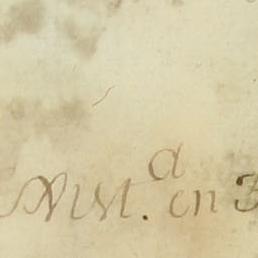 Vist.ᵃ en